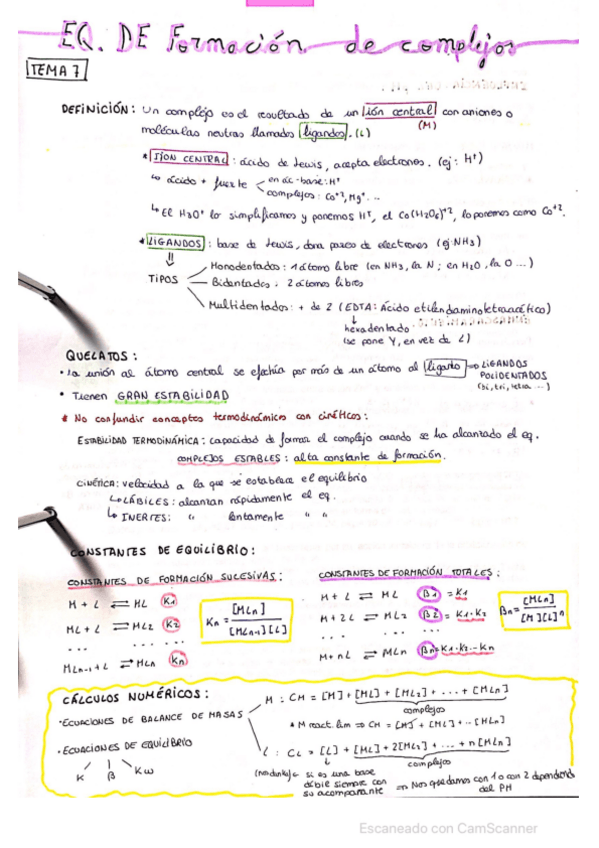 EQ. DE Formación de complejos
TEMA 7
DEFINICIÓN: Un complejo es el resultado de un ión central con aniones o
(M)
moléculas neutras llamados ligandos. (L)
* IÓN CENTRAL: ácido de Lewis, acepta electrones. (ej: H⁺)
↳ ácido + fuerte < en ác-base: H⁺
complejos: Co⁺², Mg⁺...
↳ El H3O⁺ lo simplificamos y ponemos H⁺, el Co(H2O6)⁺², lo ponemos como Co⁺².
* LIGANDOS: base de Lewis, dona pares de electrones (ej NH3)
⇓
TIPOS
Monodentados: 1 átomo libre (en NH3, la N; en H2O, la O...)
Bidentados: 2 átomos libres
Multidentados: + de 2 (EDTA: Ácido etilendaminotetraacético)
↓
hexadentado
(se pone Y, en vez de L)
QUELATOS:
• La unión al átomo central se efectúa por más de un átomo al ligando ⇒ LIGANDOS
POLIDENTADOS
(bi, tri, tetra...)
• Tienen GRAN ESTABILIDAD
* No confundir conceptos termodinámicos con cinéticos:
ESTABILIDAD TERMODINÁMICA: capacidad de formar el complejo cuando se ha alcanzado el eq.
COMPLEJOS ESTABLES: alta constante de formación.
CINÉTICA: velocidad a la que se establece el equilibrio
↳ LÁBILES: alcanzan rápidamente el eq.
↳ INERTES: " lentamente " "
CONSTANTES DE EQUILIBRIO:
CONSTANTES DE FORMACIÓN SUCESIVAS:
M + L ⇌ ML K1
ML + L ⇌ ML2 K2
... ...
MLn-1 + L ⇌ MLn Kn
Kn = [MLn] / [MLn-1][L]
CONSTANTES DE FORMACIÓN TOTALES:
M + L ⇌ ML β1 = K1
M + 2L ⇌ ML2 β2 = K1·K2
... ...
M + nL ⇌ MLn βn = K1·K2...Kn
βn = [MLn] / [M][L]ⁿ
CÁLCULOS NUMÉRICOS:
• ECUACIONES DE BALANCE DE MASAS
M: CM = [M] + [ML] + [ML2] + ... + [MLn]
complejos
* M react. lim ⇒ CM = [M] + [ML] + ..[MLn]
L: CL = [L] + [ML] + 2[ML2] + ... + n[MLn]
complejos
si es una base
débil siempre con
su acompañante ⇒ Nos quedamos con 1 o con 2 dependiendo
del PH
• ECUACIONES DE EQUILIBRIO
K β Kw
Escaneado con CamScanner